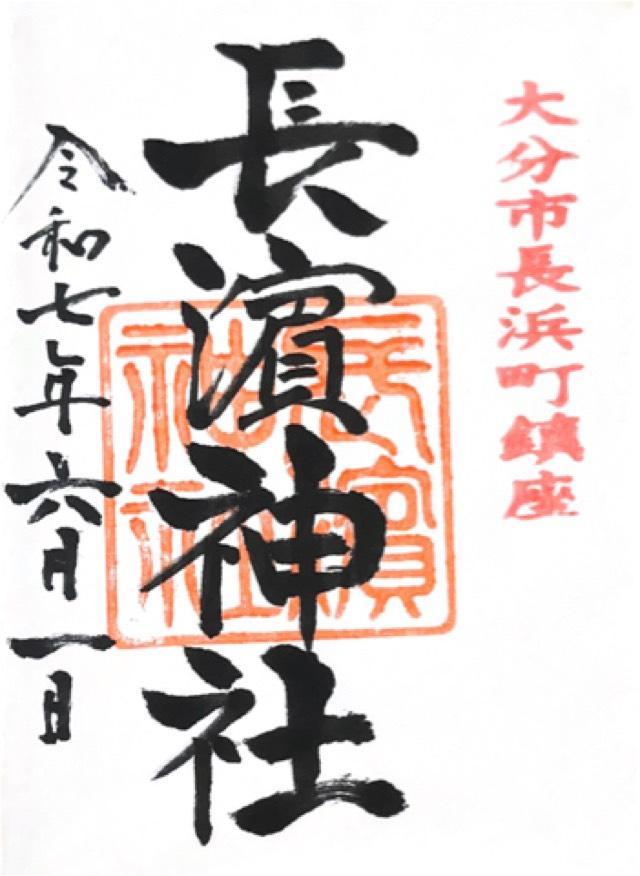 大分市長浜町鎮座
長濱神社
長濱
神社
令和七年六月一日